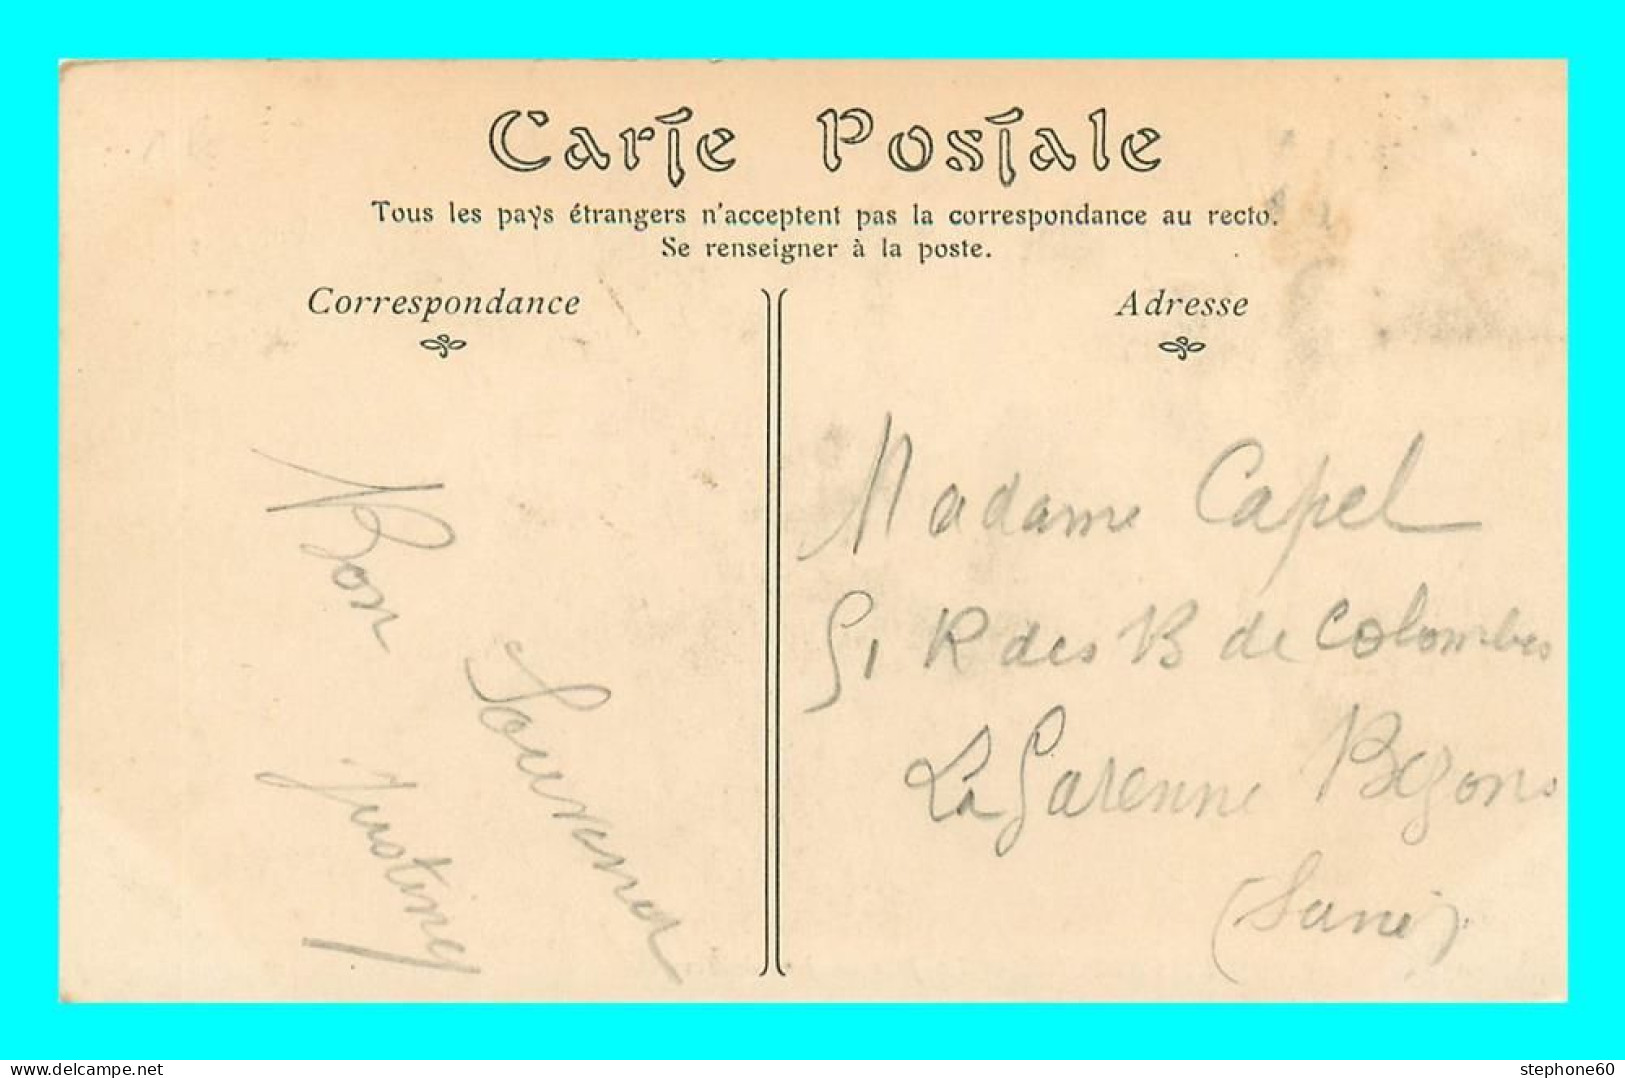 Carte Postale
Tous les pays étrangers n'acceptent pas la correspondance au recto.
Se renseigner à la poste.
Correspondance
Adresse
Bon
Souvenir
Madame Capel
51 R des B de Colombes
La Garenne Bezons
(Seine)
www.delcampe.net
stephone60